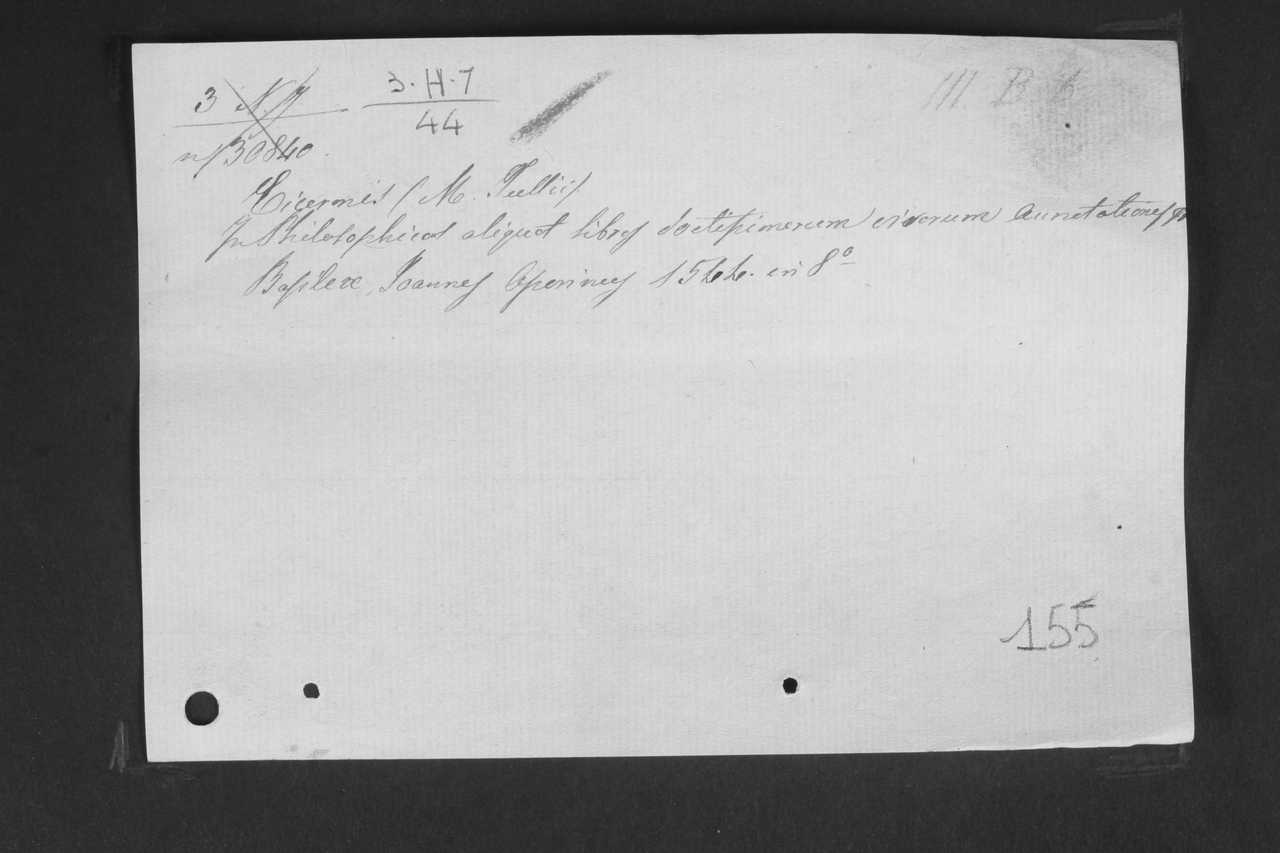 3 N 9
3.H.7
44
III B 6
n/30840
Ciceronis (M. Tullii)
In Philosophicos aliquot libros doctissimorum virorum annotationes
Basileae, Joannes Oporinus 1544. in 8º
155